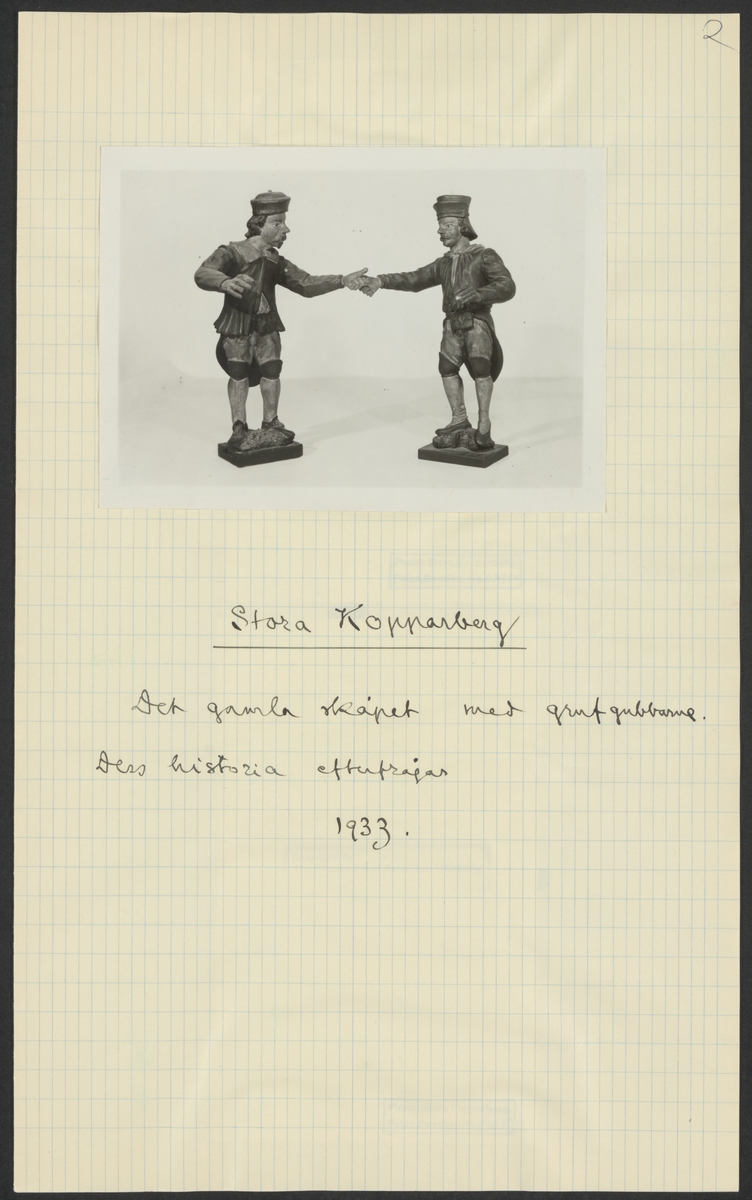 2
Stora Kopparberg
Det gamla skåpet med grufgubbarne.
Dess historia efterfrågas
1933.